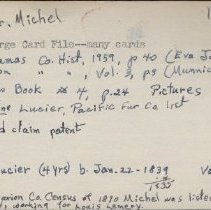 r. Michel
rge Card File--many cards
mas Co. Hist, 1959, p 40 (Eva Ja
" " , Vol. 3, p5 (Munnic
s Book # 4, p.24 Pictures
ne Lucier, Pacific Fur Co list
d claim patent
ucier (4 yrs) b. Jan. 22 - 1839 Vo
1835
arion Co. Census of 1870 Michel was liste
, working for Louis Lemery.